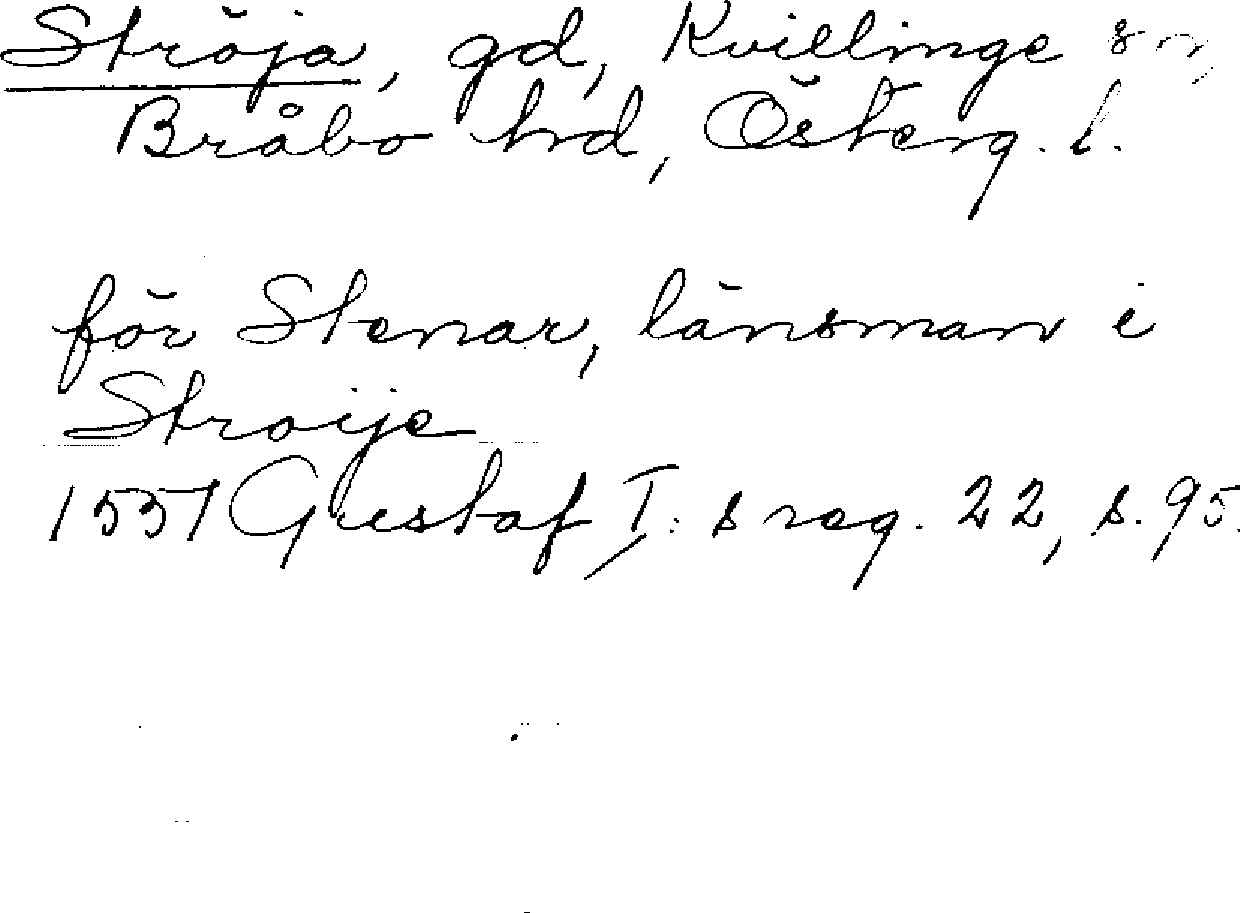 Ströja, gd, Kvillinge sn,
Bråbo hd, Österg. l.
för Stenar, länsman i
Stroije
1551 Gustaf I:s reg. 22, s. 95.